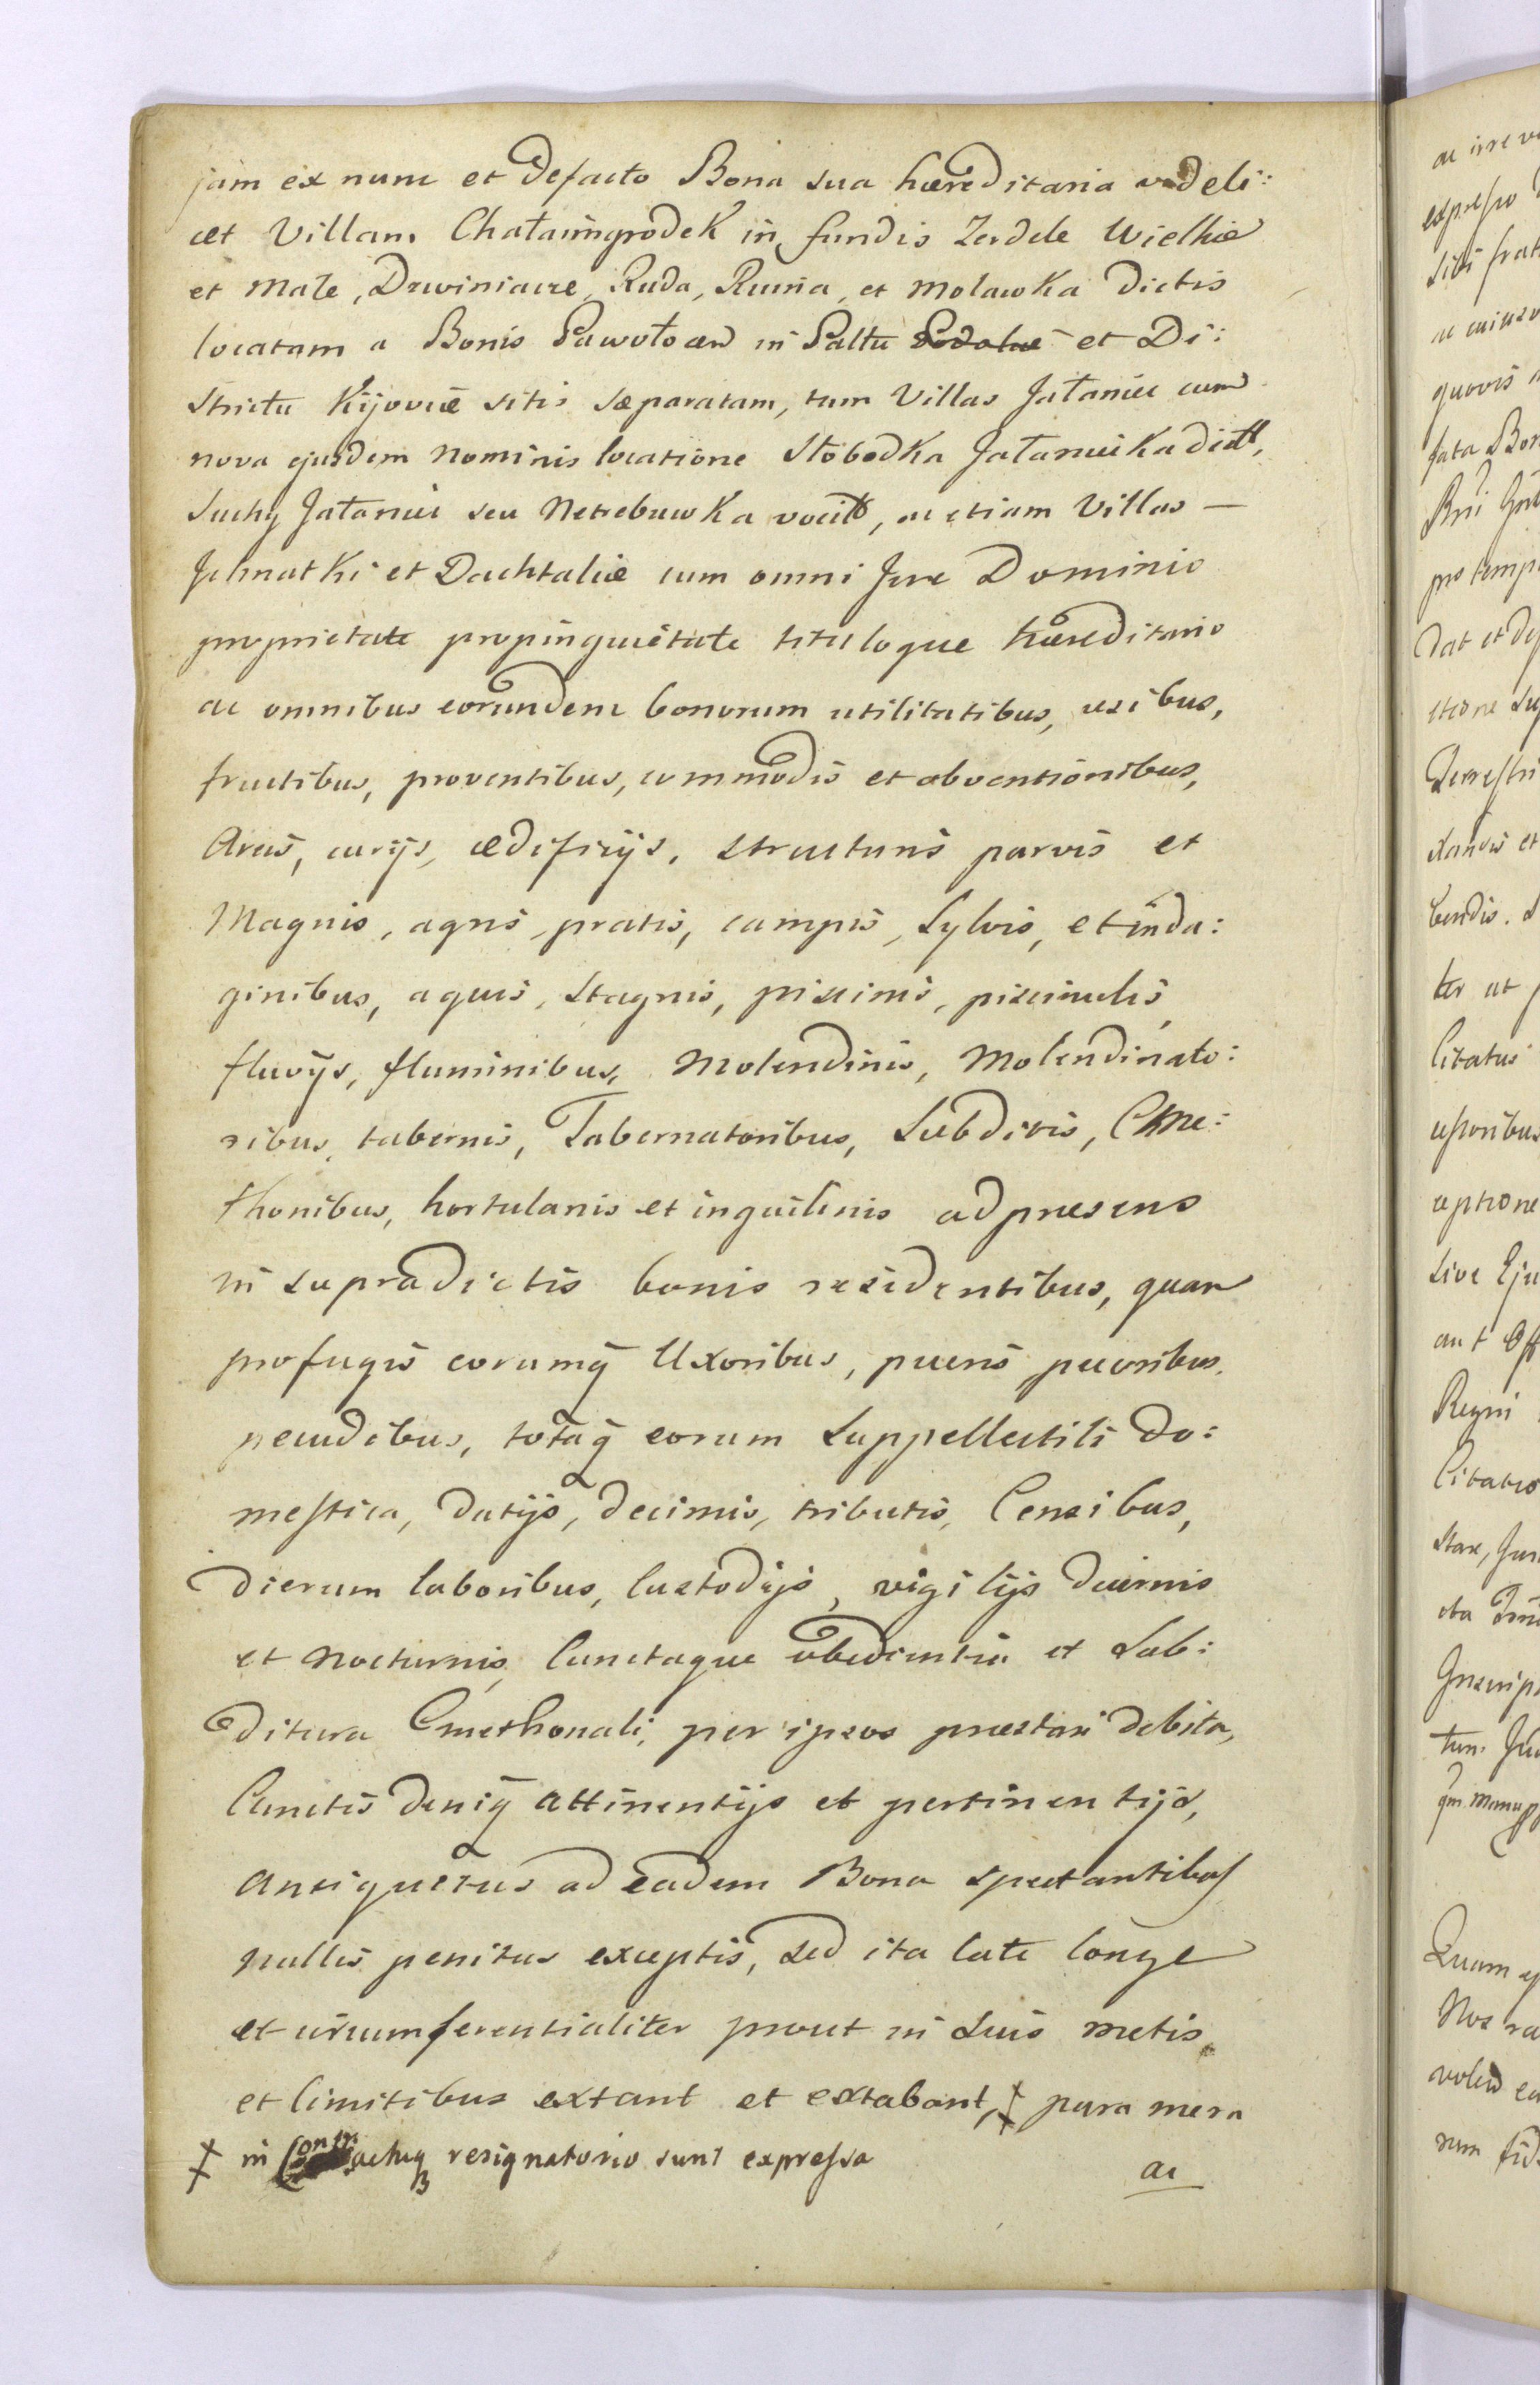 jam ex nunc et Defacto Bona sua hæreditaria videli:
cet Villam Chałaimgrodek in fundis Zerdele Wielkie
et Małe, Drwiniacze, Ruda, Ruina, et Molawka Dictis
locatam a Bonis Pawołocza in Paltu Podoliæ et Di:
strictu Kijoviæ sitis sæparatam, tum Villas Jałaniec cum
nova ejusdem Nominis locatione Słobodka Jałaniecka dict,
Suchy Jałaniec seu Netrebuwka vocit, ac etiam Villas —
Jchnatki et Dachtaliæ cum omni Jure Dominio
proprietate propinquietate tituloque hæreditario
ac omnibus eorundem bonorum utilitatibus, usibus,
fructibus, proventibus, commodis et obventionibus,
Areis, curijs, ædificijs, structuris parvis et
Magnis, agris, pratis, campis, Sylvis, et inda:
ginibus, aquis, stagnis, piscinis, piscinulis,
fluvijs, fluminibus, Molendinis, Molendinato:
ribus, tabernis, Tabernatoribus, Subditis, Cme:
thonibus, hortulanis et inquilinis ad presens
in supradictis bonis residentibus, quam
profugis eorumq̃ Uxoribus, pueris pecoribus,
pecudibus, totaq̃ eorum Suppellectili Do:
mestica, Datijs, Decimis, tributis, Censibus,
Dierum laboribus, Custodijs, vigilijs Diurnis
et Nocturnis, Cunctaque obedientia et Sub:
ditura Cmethonali, per ipsos præstari Debita,
Cunctis Deniq̃ attinentijs et pertinentijs,
Antiquetus ad eadem Bona spectantibus
nullis penitus exceptis, Sed ita late longe
et circumferentialiter prout in Suis metis,
et limitibus extant et extabant, ‡ pura mera
‡ in Contractuq resignatorio sunt expressa
ac